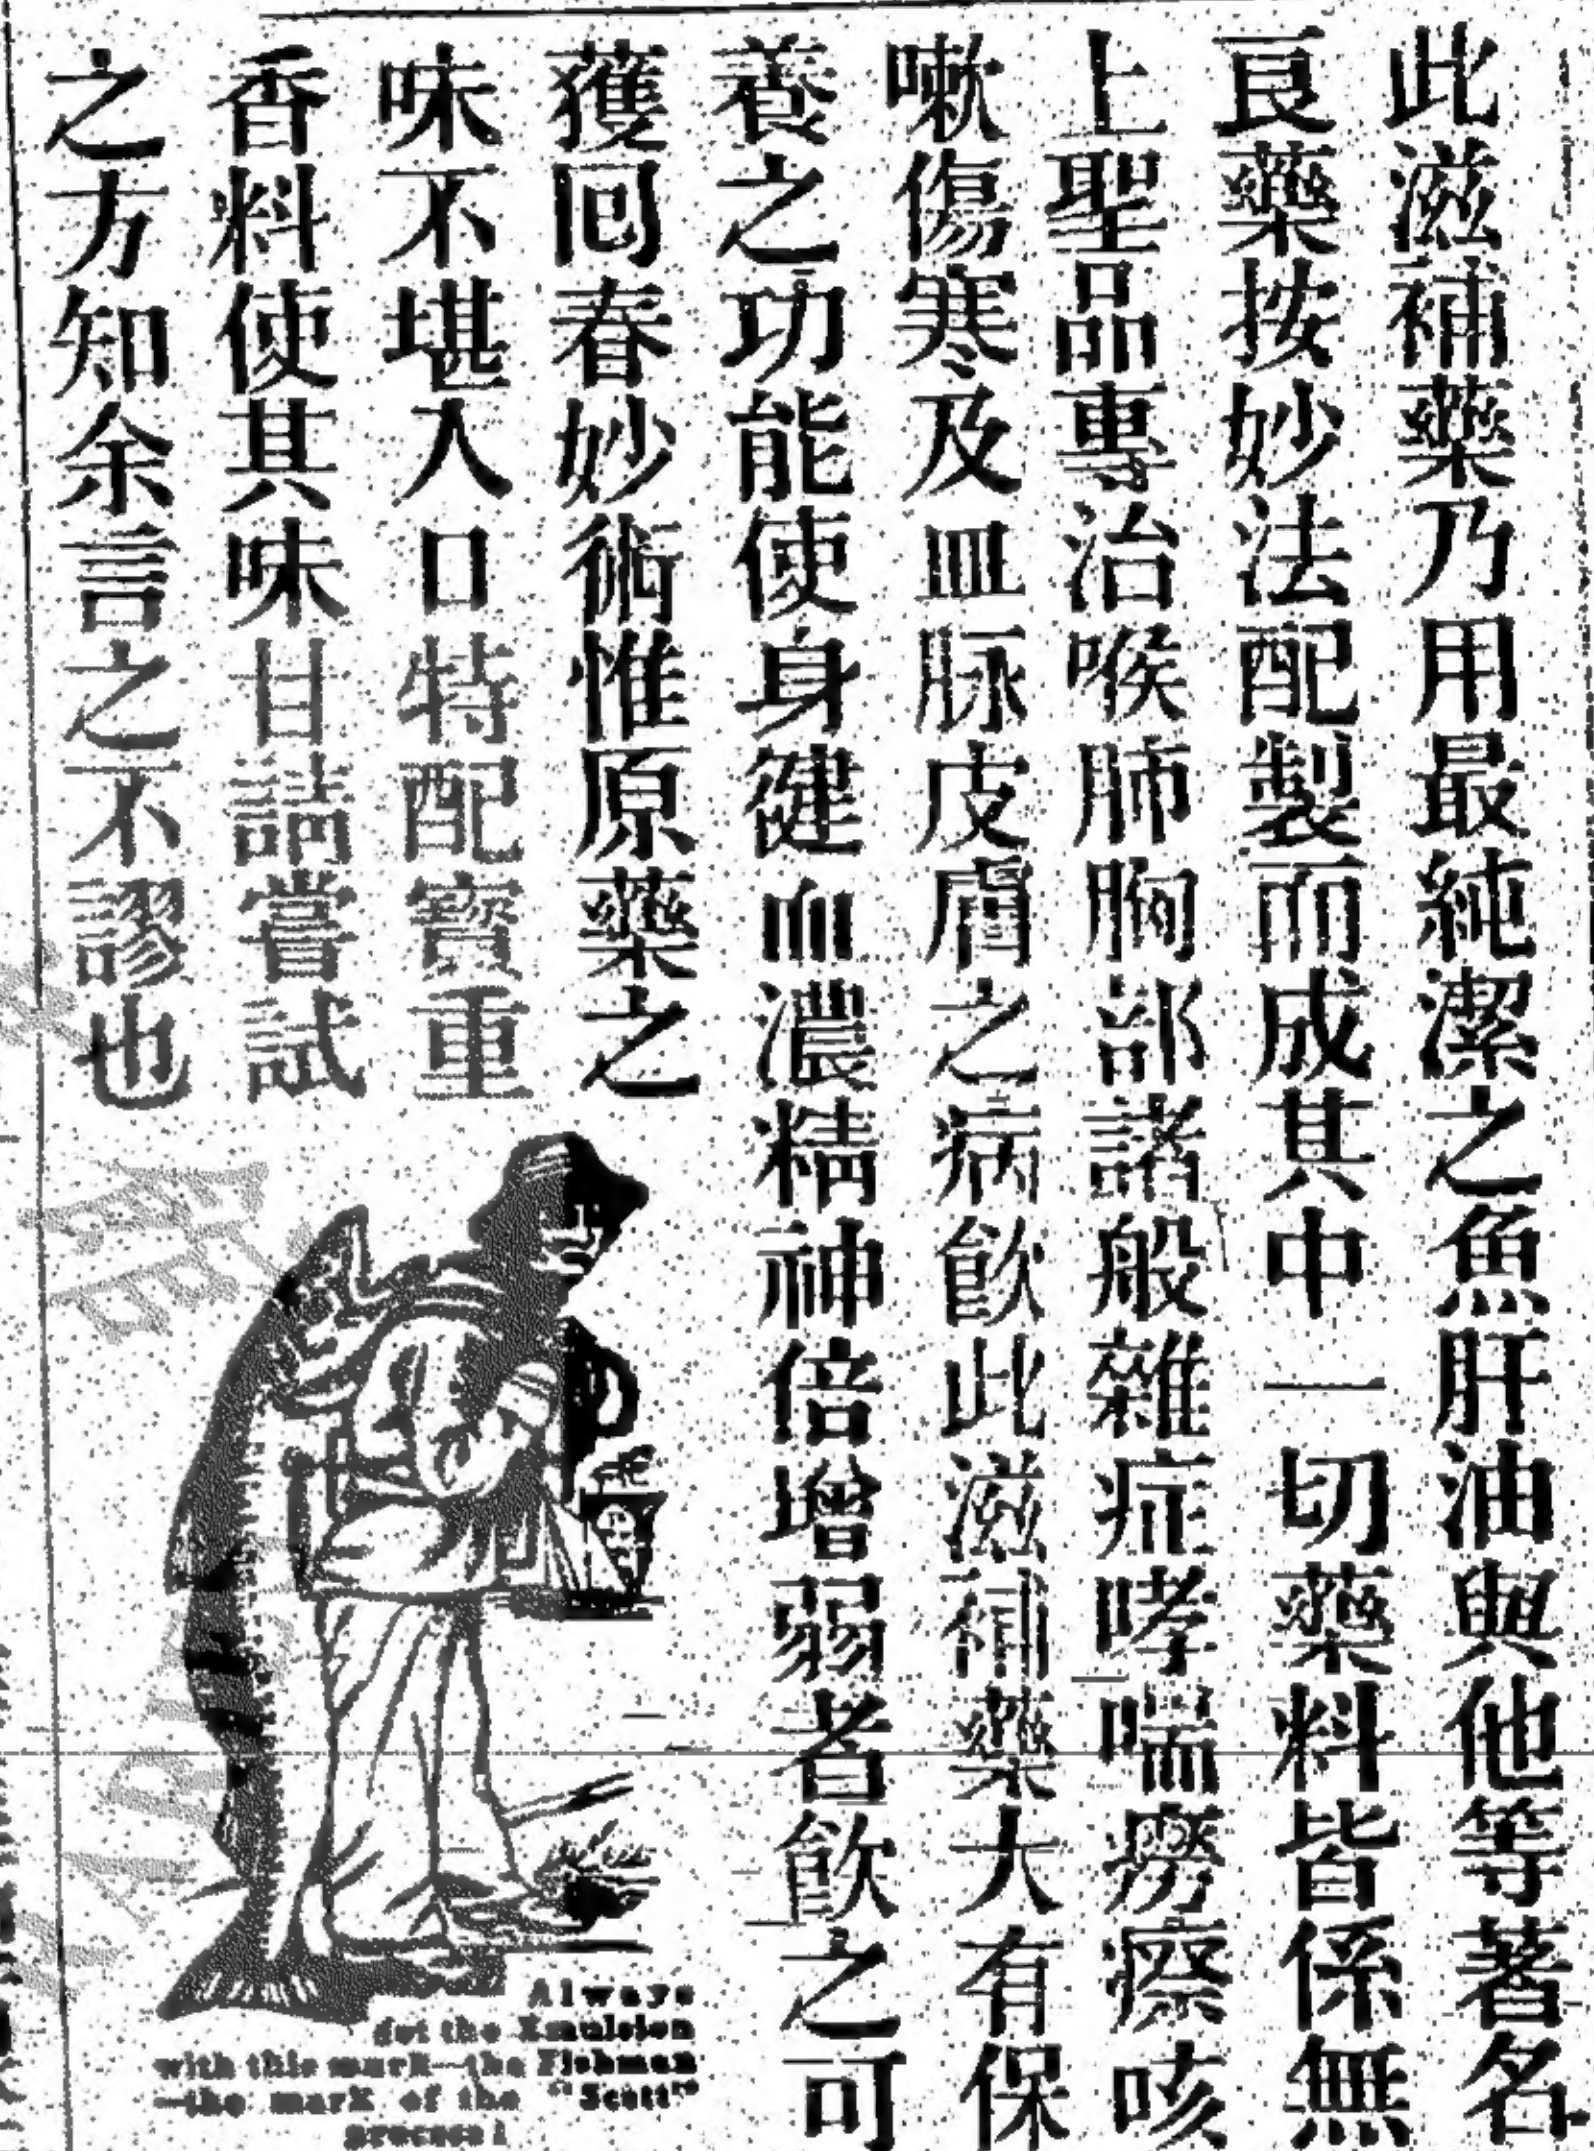 此滋補藥乃用最純潔之魚肝油與他等著名
良藥按妙法配製而成其中一切藥料皆係無
上聖品專治喉肺胸部諸般雜症哮喘癆瘵咳
嗽傷寒及皿脉皮膚之病飲此滋補藥大有保
養之功能使身健血濃精神倍增弱者飲之可
獲囘春妙術惟原藥之
味不堪入口特配寶重
香料使其味甘請嘗試
之方知余言之不謬也
Always
Get the Emulsion
with this mark—the Fishman
—the mark of the "Scott"
process!